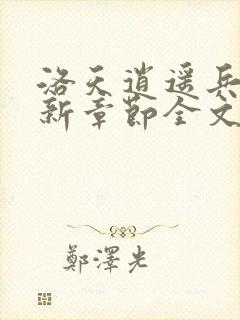 洛天逍遥兵
新章節全文
鄭澤光